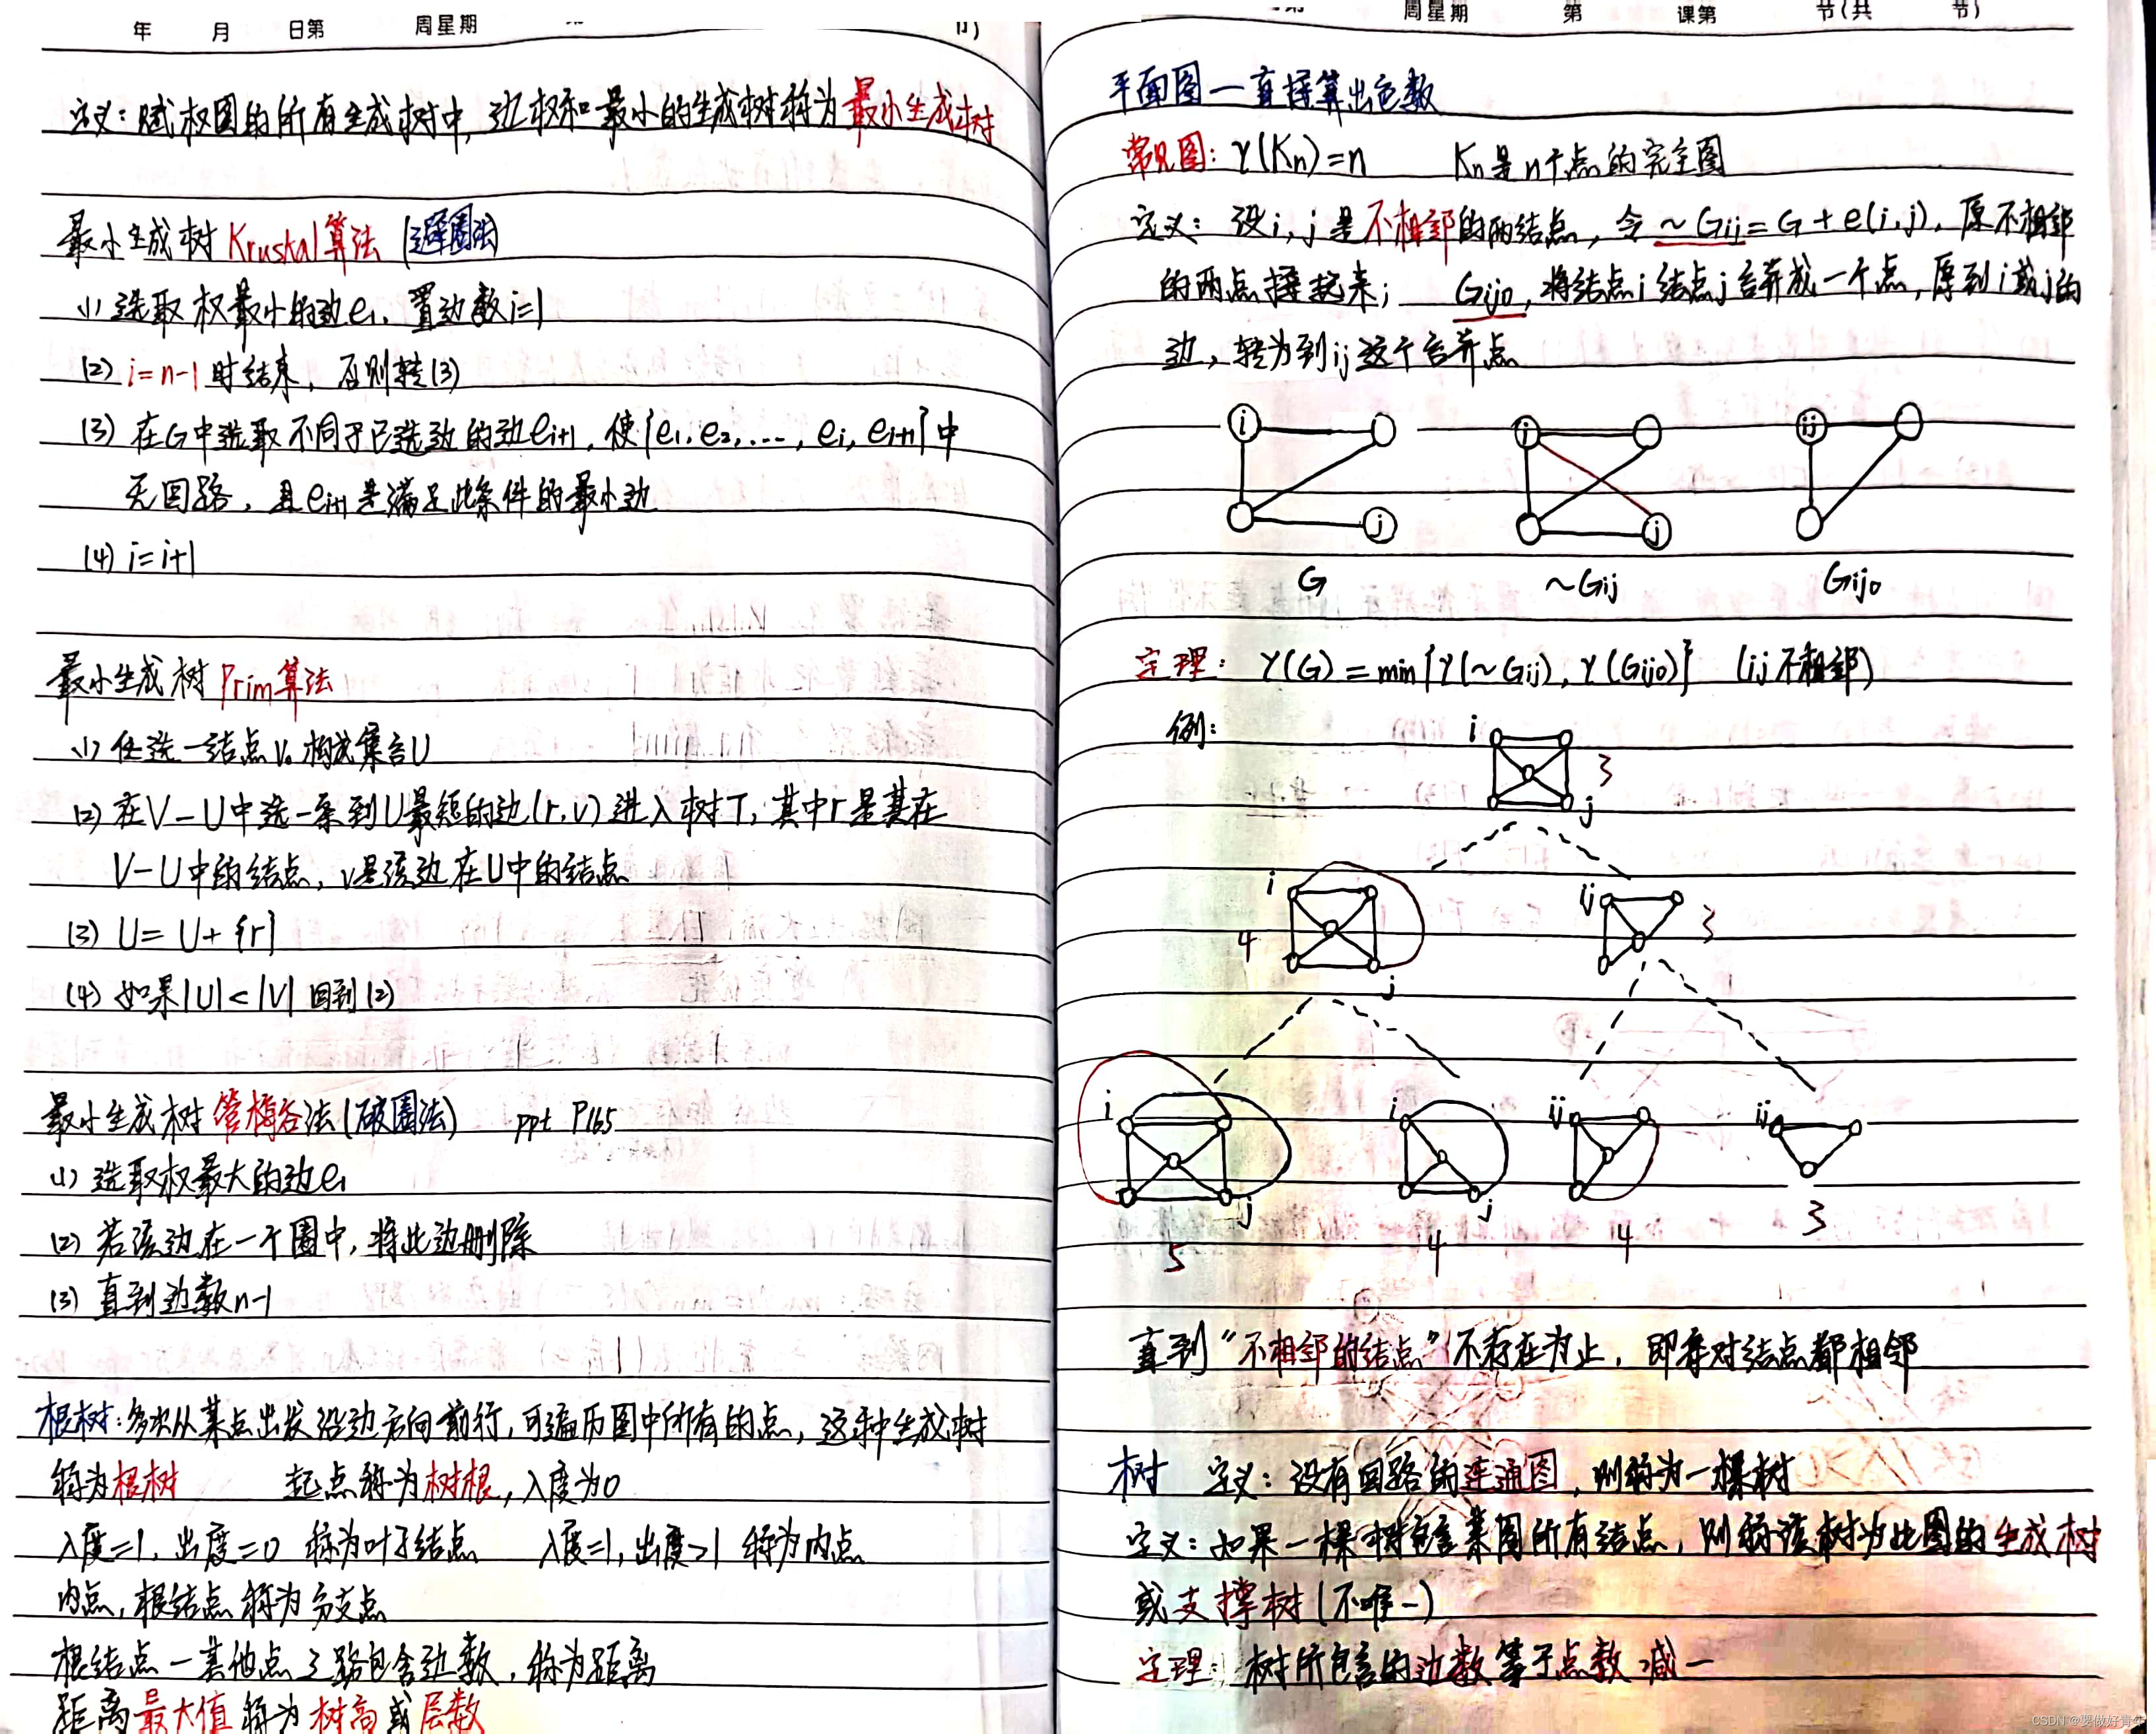 年 月 日第 周星期 节)
定义：赋权图的所有生成树中，边权和最小的生成树称为最小生成树
最小生成树Kruskal算法(避圈法)
(1) 选取权最小的边e1，置边数i=1
(2) i=n-1时结束，否则转(3)
(3) 在G中选取不同于已选边的边ei+1，使{e1,e2,...,ei,ei+1}中
无回路，且ei+1是满足此条件的最小边
(4) i=i+1
最小生成树Prim算法
(1) 任选一结点V0构成集合U
(2) 在V-U中选一条到U最短的边(r,v)进入树T，其中r是其在
V-U中的结点，v是该边在U中的结点
(3) U=U+{r}
(4) 如果|U|<|V| 回到(2)
最小生成树管梅谷法(破圈法) ppt P165
(1) 选取权最大的边e1
(2) 若该边在一个圈中，将此边删除
(3) 直到边数n-1
根树：多次从某点出发沿边方向前行，可遍历图中所有的点，这种生成树
称为根树 起点称为树根，入度为0
入度=1，出度=0 称为叶子结点 入度=1，出度>1 称为内点
内点，根结点称为分支点
根结点一其他点之路包含边数，称为距离
距离最大值称为树高或层数
周星期 第 课第 节(共 节)
平面图一直接算出色数
常见图：γ(Kn)=n Kn是n个点的完全图
定义：设i，j是不相邻的两结点，令~Gij=G+e(i,j)，原不相邻
的两点接起来； Gij0，将结点i结点j合并成一个点，原到i或j的
边，转为到ij这个合并点
i j
i j
ij
G ~Gij Gij0
定理：γ(G)=min{γ(~Gij),γ(Gij0)} (ij不相邻)
例：
i 3 j
i 4 j
ij 3
i j 5
i j 4
ij 4
ij 3
直到"不相邻的结点"不存在为止，即每对结点都相邻
树 定义：没有回路的连通图，则称为一棵树
定义：如果一棵树包含某图所有结点，则称该树为此图的生成树
或支撑树(不唯一)
定理：树所包含的边数等于点数减一
CSDN @要做好青年